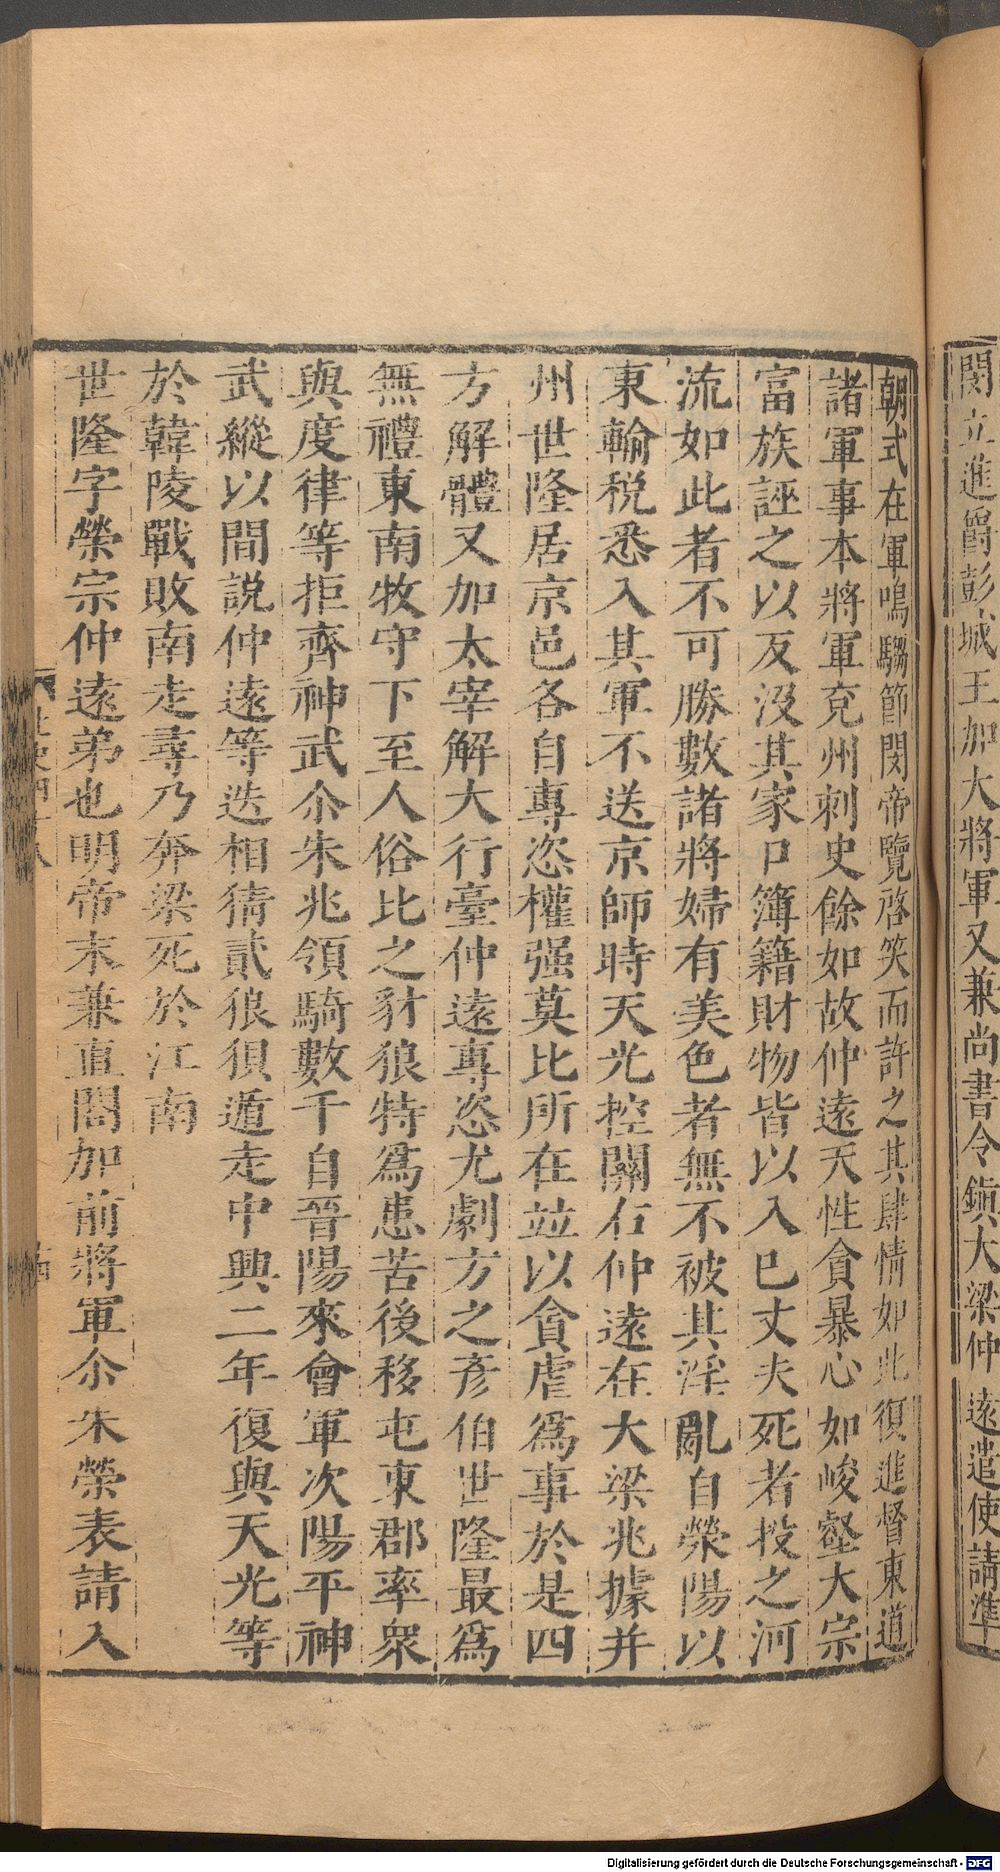 閔立進爵彭城王加大將軍又兼尚書令鎭大梁仲遠遣使請準
朝式在軍鳴騶節閔帝覽啓笑而許之其肆情如此復進督東道
諸軍事本將軍兗州刺史餘如故仲遠天性貪暴心如峻壑大宗
富族誣之以反沒其家口簿籍財物皆以入已丈夫死者投之河
流如此者不可勝數諸將婦有美色者無不被其淫亂自滎陽以
東輸稅悉入其軍不送京師時天光控關右仲遠在大梁兆據并
州世隆居京邑各自專恣權强莫比所在竝以貪虐爲事於是四
方解體又加太宰解大行臺仲遠專恣尤劇方之彥伯世隆最爲
無禮東南牧守下至人俗比之豺狼特爲患苦後移屯東郡率衆
與度律等拒齊神武尒朱兆領騎數千自晉陽來會軍次陽平神
武縱以間說仲遠等迭相猜貳狼狽遁走中興二年復與天光等
於韓陵戰敗南走尋乃奔梁死於江南
世隆字榮宗仲遠弟也明帝末兼直閤加前將軍尒朱榮表請入
Digitalisierung gefördert durch die Deutsche Forschungsgemeinschaft - DFG